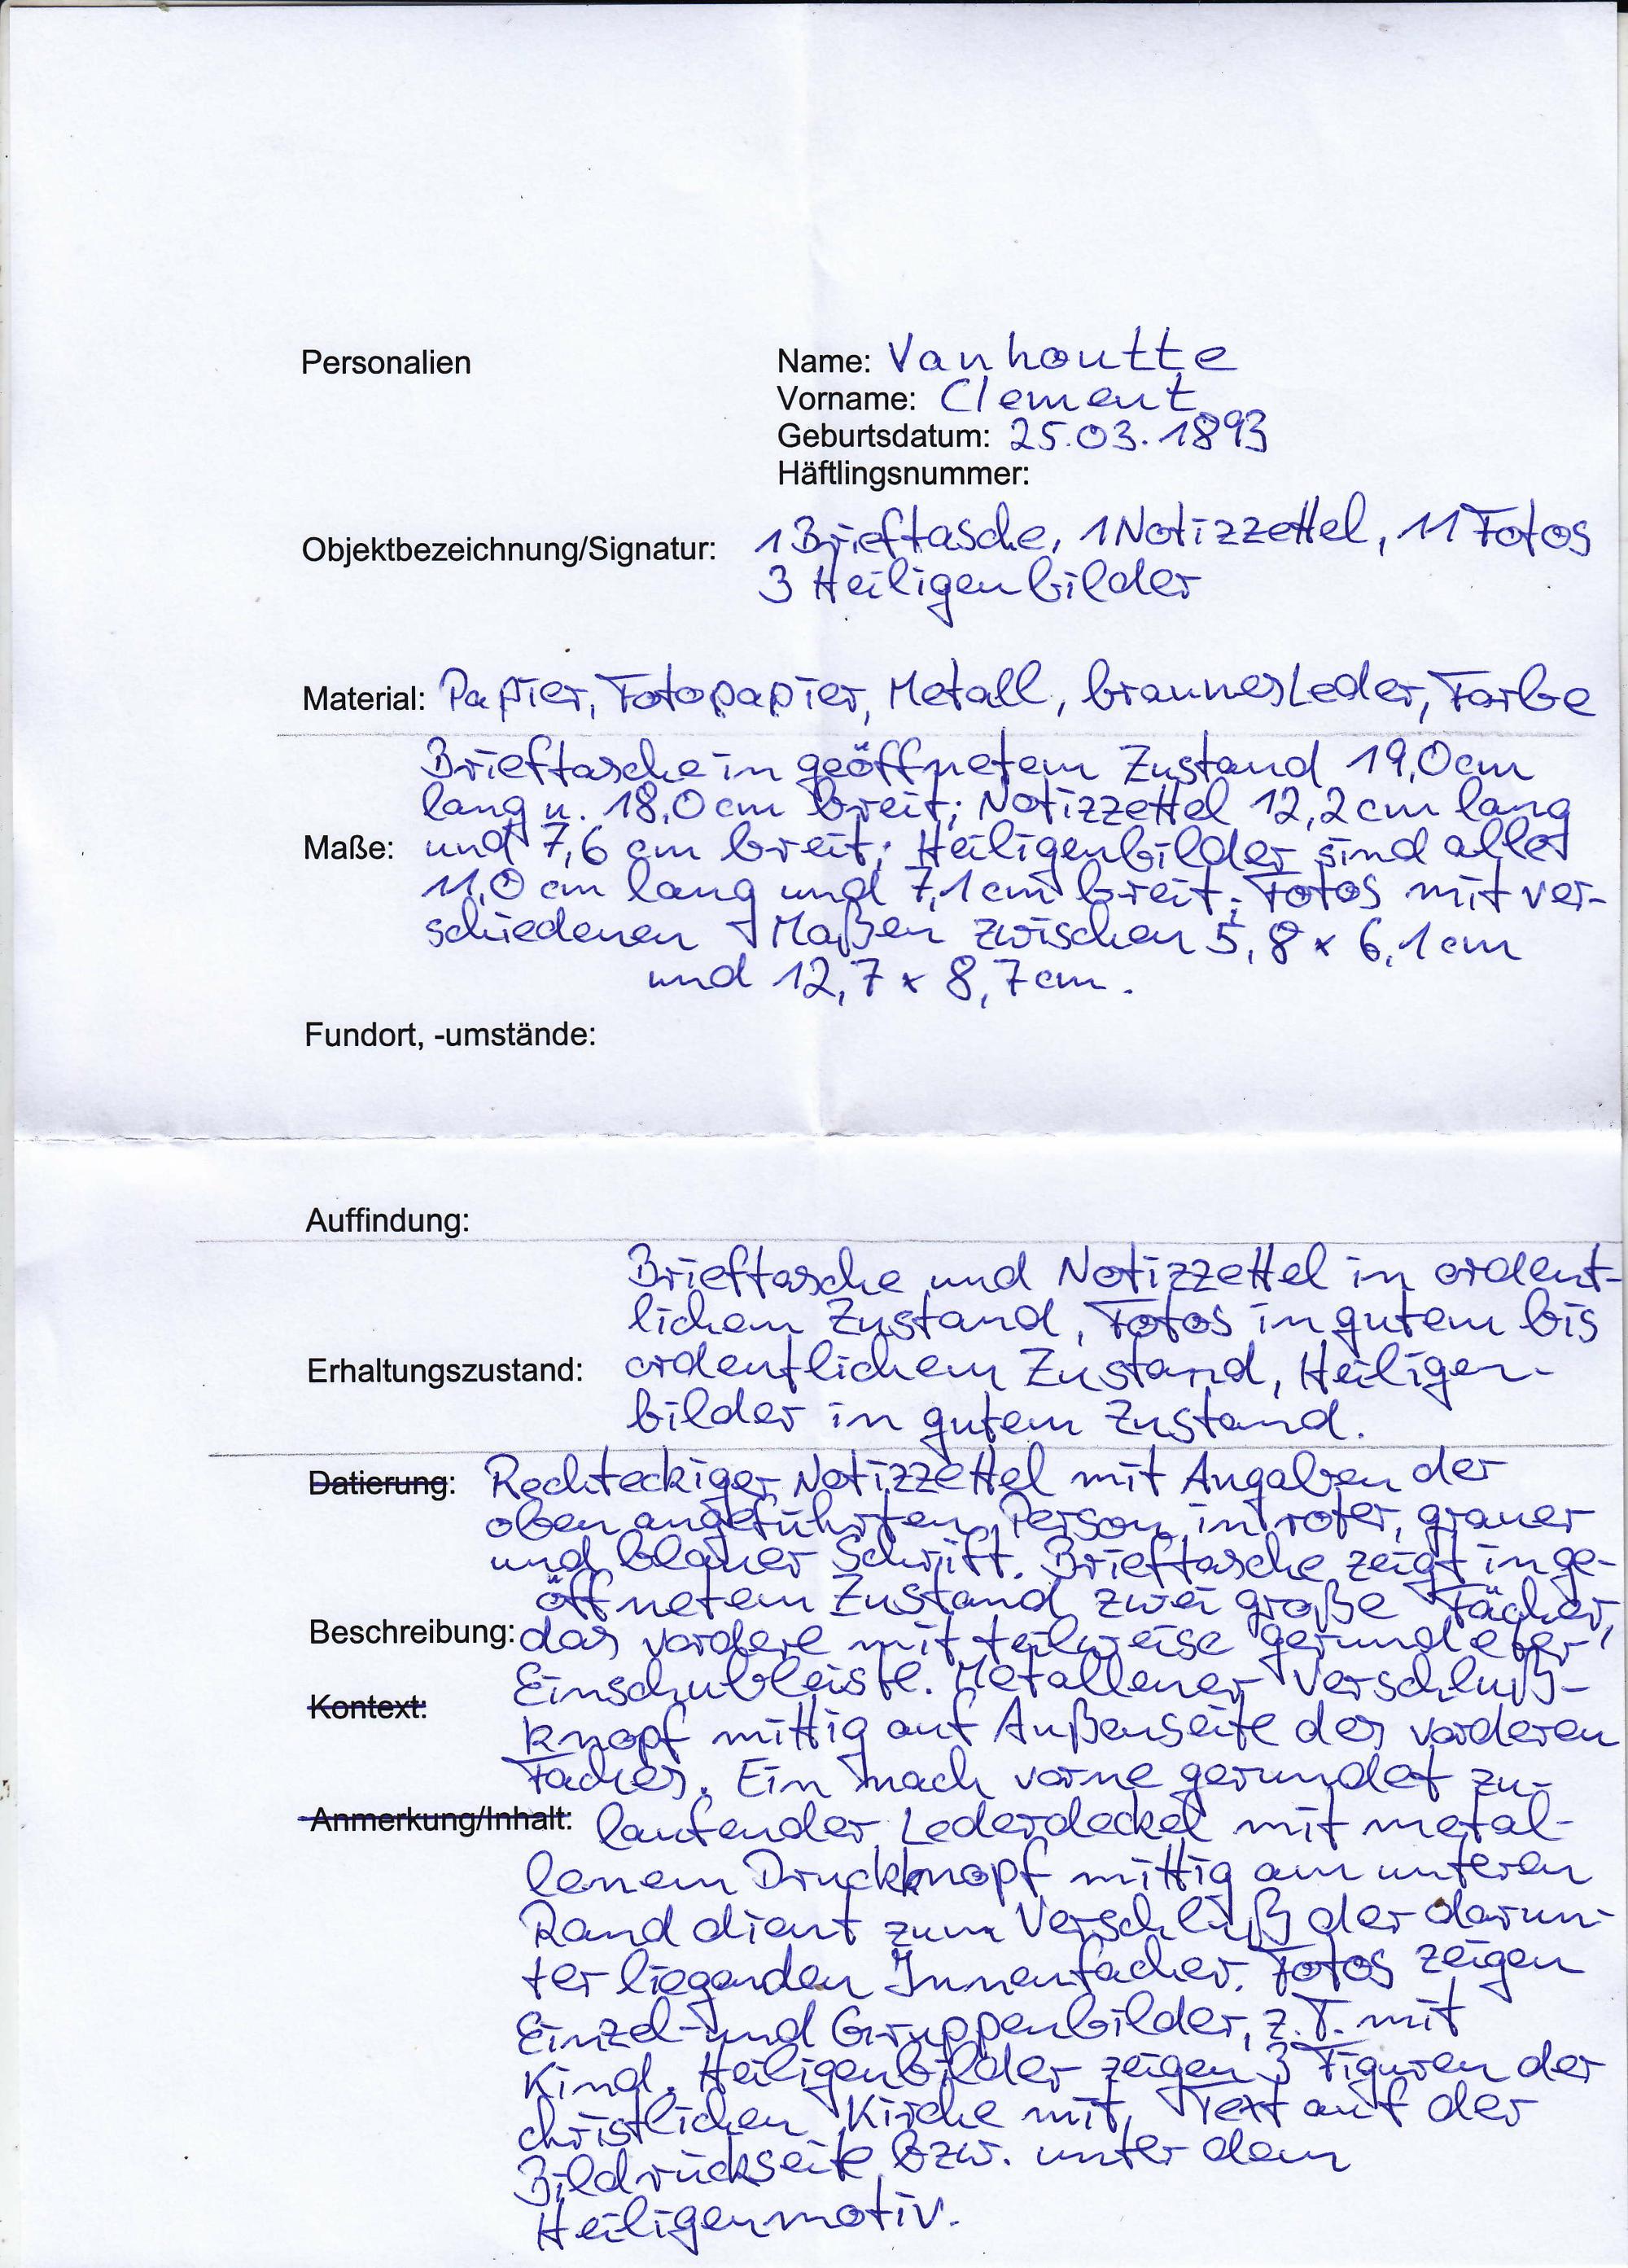 Personalien
Name: Vanhoutte
Vorname: Clement
Geburtsdatum: 25.03.1893
Häftlingsnummer:
Objektbezeichnung/Signatur: 1 Brieftasche, 1 Notizzettel, 11 Fotos
3 Heiligenbilder
Material: Papier, Fotopapier, Metall, braunes Leder, Farbe
Brieftasche in geöffnetem Zustand 19,0 cm
lang u. 18,0 cm breit; Notizzettel 12,2 cm lang
Maße: und 7,6 cm breit; Heiligenbilder sind alle
11,0 cm lang und 7,1 cm breit; Fotos mit ver-
schiedenen Maßen zwischen 5,8 x 6,1 cm
und 12,7 x 8,7 cm.
Fundort, -umstände:
Auffindung:
Brieftasche und Notizzettel in ordent-
lichem Zustand, Fotos in gutem bis
Erhaltungszustand: ordentlichem Zustand, Heiligen-
bilder in gutem Zustand.
Datierung: Rechteckiger Notizzettel mit Angaben der
oben angeführten Person in roter, grauer
und blauer Schrift. Brieftasche zeigt in ge-
öffnetem Zustand zwei große Fächer,
Beschreibung: das vordere mit teilweise gerundeter
Einschubleiste. Metallener Verschluß-
Kontext:
knopf mittig auf Außenseite des vorderen
Faches. Ein nach vorne gerundet zu-
Anmerkung/Inhalt: laufender Lederdeckel mit metal-
lenem Druckknopf mittig am unteren
Rand dient zum Verschluß der darun-
ter liegenden Innenfächer. Fotos zeigen
Einzel- und Gruppenbilder, z.T. mit
Kind. Heiligenbilder zeigen 3 Figuren der
christlichen Kirche mit Text auf der
Bildrückseite bzw. unter dem
Heiligenmotiv.